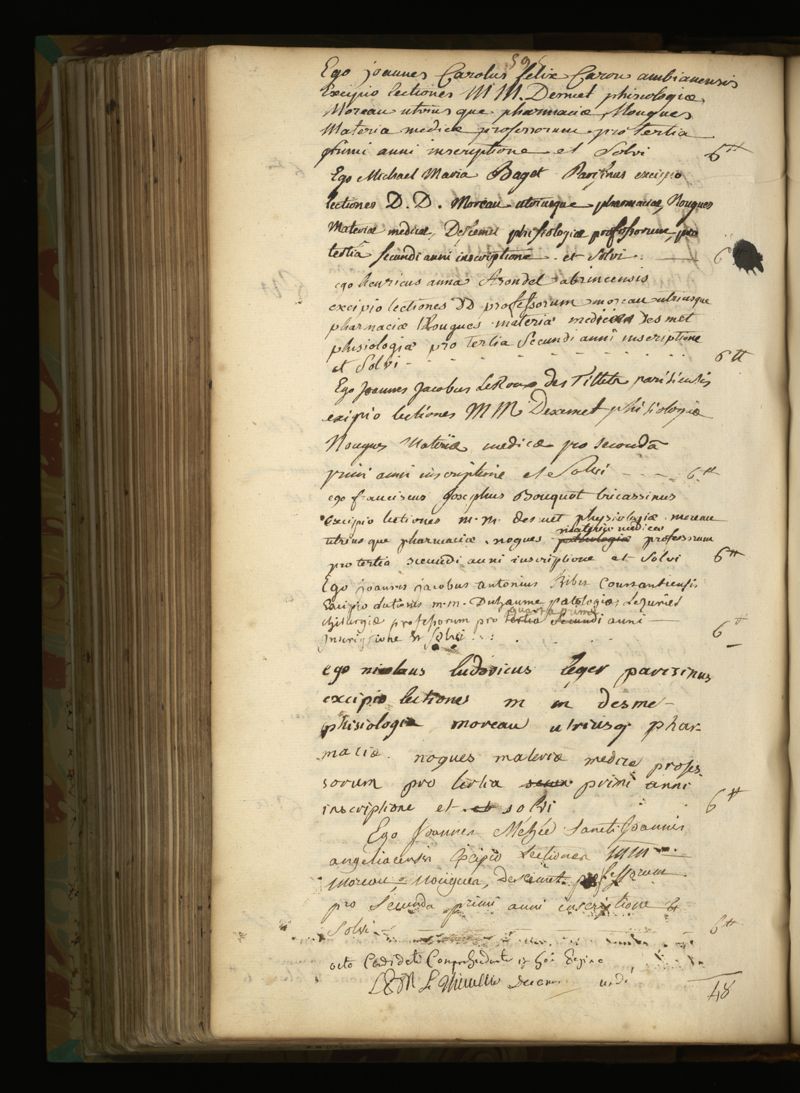 59
Ego joannes Carolus felix Caron ambianensis
Excipio lectiones M M. Desmet phisiologiæ
Moreau utriusque pharmaciæ Nougues
Materia medicæ professorum pro tertia
primi anni inscriptione et Solvi 6tt
Ego Michael Maria Bagot Parisinus excipio
lectiones D. D. Moreau utriusque pharmaciæ, Nougues
Materiæ medicæ, Desemet phisiologiæ professorum, pro
tertiâ secundi anni inscriptione et solvi 6
ego henricus anna Arondel abrincensis
excipio lectiones DD professorum moreau utriusque
pharmaciæ Nougues materiæ medicæ Desmet
phisiologiæ pro tertia Secundi anni inscriptione
et Solvi 6tt
Ego Joannes Jacobus LeRoux des Tillets parisiensis
exipio lectiones M M Desemet phisiologiæ
Nougues Materiæ medicæ pro secondâ
primi anni inscriptione et Solvi 6tt
ego franciscus josephus Bouquot tricassinus
excipio lectiones m. m. desmet physiologiæ moreau
utriusque pharmaciæ nogues materiæ medicæ professorum
pro tertia secundi anni inscriptione et Solvi 6tt
Ego joannes jacobus antonius Ribes Constantiensis
Excipio m. m. Duhaume patologiæ
chirurgiæ professorum pro quarta primi anni
inscriptione et Solvi 6tt
ego nicolaus ludovicus leger parisinus
excipio lectiones m m desme
phisiologiæ moreau utriusq phar-
maciæ. nogues materiæ medice profes
sorum pro tertia primi anni
inscriptione et solvi 6tt
Ego Joannes Mehée Sancti Joannis
angeliacensis Excipio Lectiones MM
Moreau, Nougues, Desemet professorum
pro Secunda primi anni inscriptione et
Solvi 6tt
octo
48